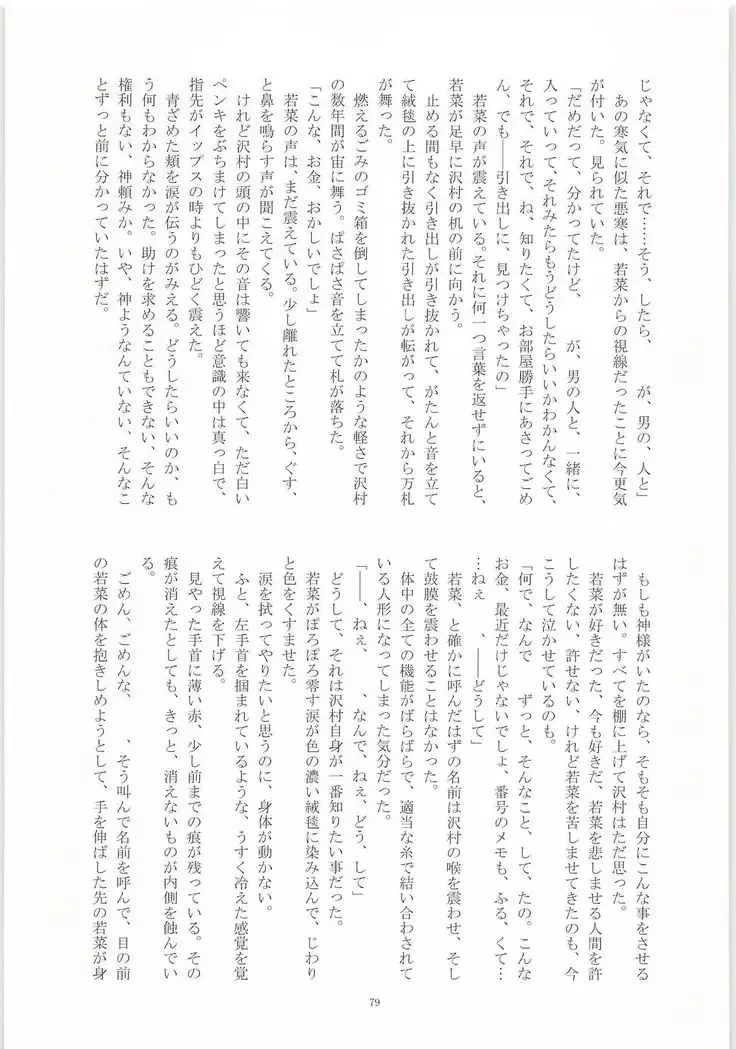 じゃなくて、それで……そう、したら、　　が、男の、人と」
　あの寒気に似た悪寒は、若菜からの視線だったことに今更気
が付いた。見られていた。
「だめだって、分かってたけど、　　が、男の人と、一緒に、
入っていって、それみたらもうどうしたらいいかわかんなくて、
それで、それで、ね、知りたくて、お部屋勝手にあさってごめ
ん、でも――引き出しに、見つけちゃったの」
　若菜の声が震えている。それに何一つ言葉を返せずにいると、
若菜が足早に沢村の机の前に向かう。
　止める間もなく引き出しが引き抜かれて、がたんと音を立て
て絨毯の上に引き抜かれた引き出しが転がって、それから万札
が舞った。
　燃えるごみのゴミ箱を倒してしまったかのような軽さで沢村
の数年間が宙に舞う。ぱさぱさ音を立てて札が落ちた。
「こんな、お金、おかしいでしょ」
　若菜の声は、まだ震えている。少し離れたところから、ぐす、
と鼻を鳴らす声が聞こえてくる。
　けれど沢村の頭の中にその音は響いても来なくて、ただ白い
ペンキをぶちまけてしまったと思うほど意識の中は真っ白で、
指先がイップスの時よりもひどく震えた。
　青ざめた頬を涙が伝うのがみえる。どうしたらいいのか、も
う何もわからなかった。助けを求めることもできない、そんな
権利もない、神頼みか。いや、神ようなんていない、そんなこ
とずっと前に分かっていたはずだ。
　もしも神様がいたのなら、そもそも自分にこんな事をさせる
はずが無い。すべてを棚に上げて沢村はただ思った。
　若菜が好きだった、今も好きだ、若菜を悲しませる人間を許
したくない、許せない、けれど若菜を苦しませてきたのも、今
こうして泣かせているのも。
「何で、なんで　　ずっと、そんなこと、して、たの。こんな
お金、最近だけじゃないでしょ、番号のメモも、ふる、くて…
…ねぇ　　、――どうして」
　若菜、と確かに呼んだはずの名前は沢村の喉を震わせ、そし
て鼓膜を震わせることはなかった。
　体中の全ての機能がばらばらで、適当な糸で結い合わされて
いる人形になってしまった気分だった。
「――、ねぇ、　　、なんで、ねぇ、どう、して」
　どうして、それは沢村自身が一番知りたい事だった。
　若菜がぽろぽろ零す涙が色の濃い絨毯に染み込んで、じわり
と色をくすませた。
　涙を拭ってやりたいと思うのに、身体が動かない。
　ふと、左手首を掴まれているような、うすく冷えた感覚を覚
えて視線を下げる。
　見やった手首に薄い赤、少し前までの痕が残っている。その
痕が消えたとしても、きっと、消えないものが内側を蝕んでい
る。
　ごめん、ごめんな、　　、そう叫んで名前を呼んで、目の前
の若菜の体を抱きしめようとして、手を伸ばした先の若菜が身
79